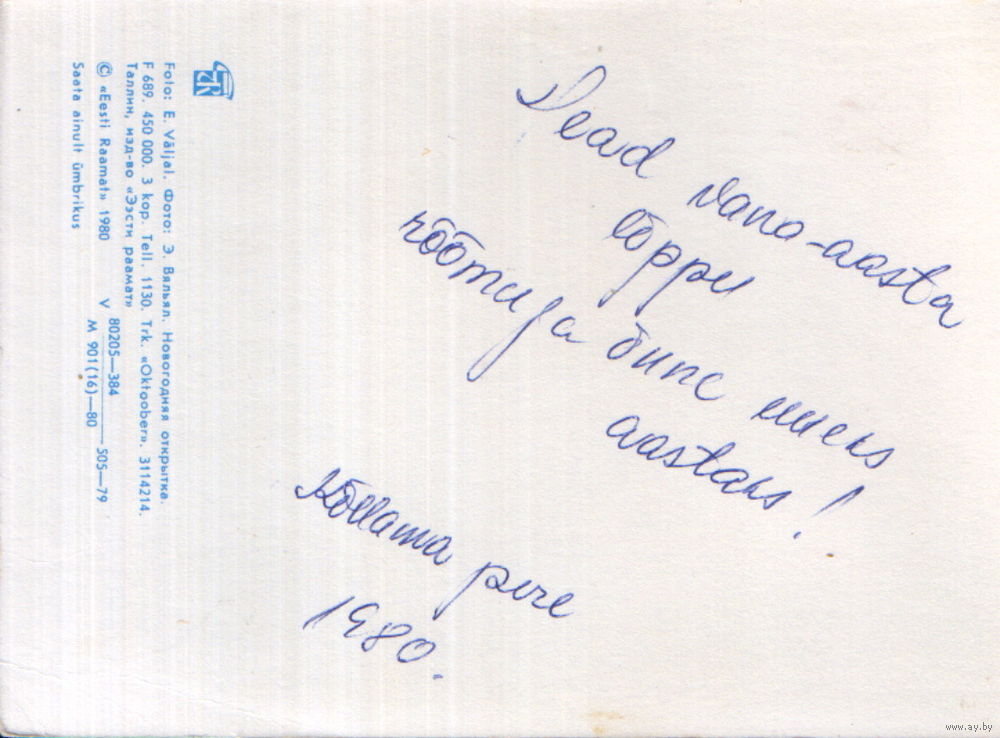 Head vana-aasta
lõppu
rõõmu ja õnne uueks
aastaks!
Põllama pere
1980.
Foto: E. Väljal. Фото: Э. Вяльял. Новогодняя открытка.
F 689. 450 000. 3 kop. Tell. 1130. Trk. «Oktoober». 3114214.
Таллин, изд-во «Ээсти раамат»
© «Eesti Raamat» 1980 V 80205—384 505—79
M 901(16)—80
Saata ainult ümbrikus
www.ay.by